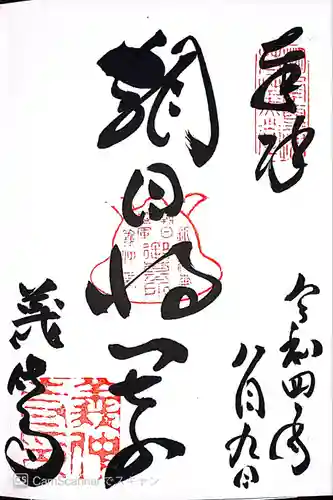 奉拝
朝日将軍
義仲寺
令和四年
八月九日
CamScannerでスキャン